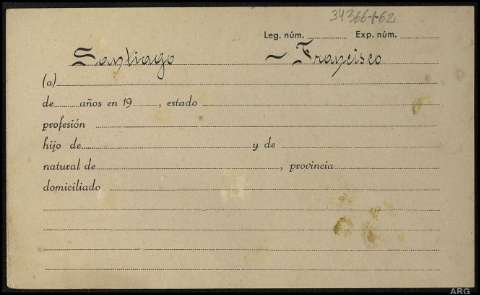 34366-1-62
Leg. núm. Exp. núm.
Santiago - Francisco
(a)
de años en 19 , estado
profesión
hijo de y de
natural de , provincia
domiciliado
ARG